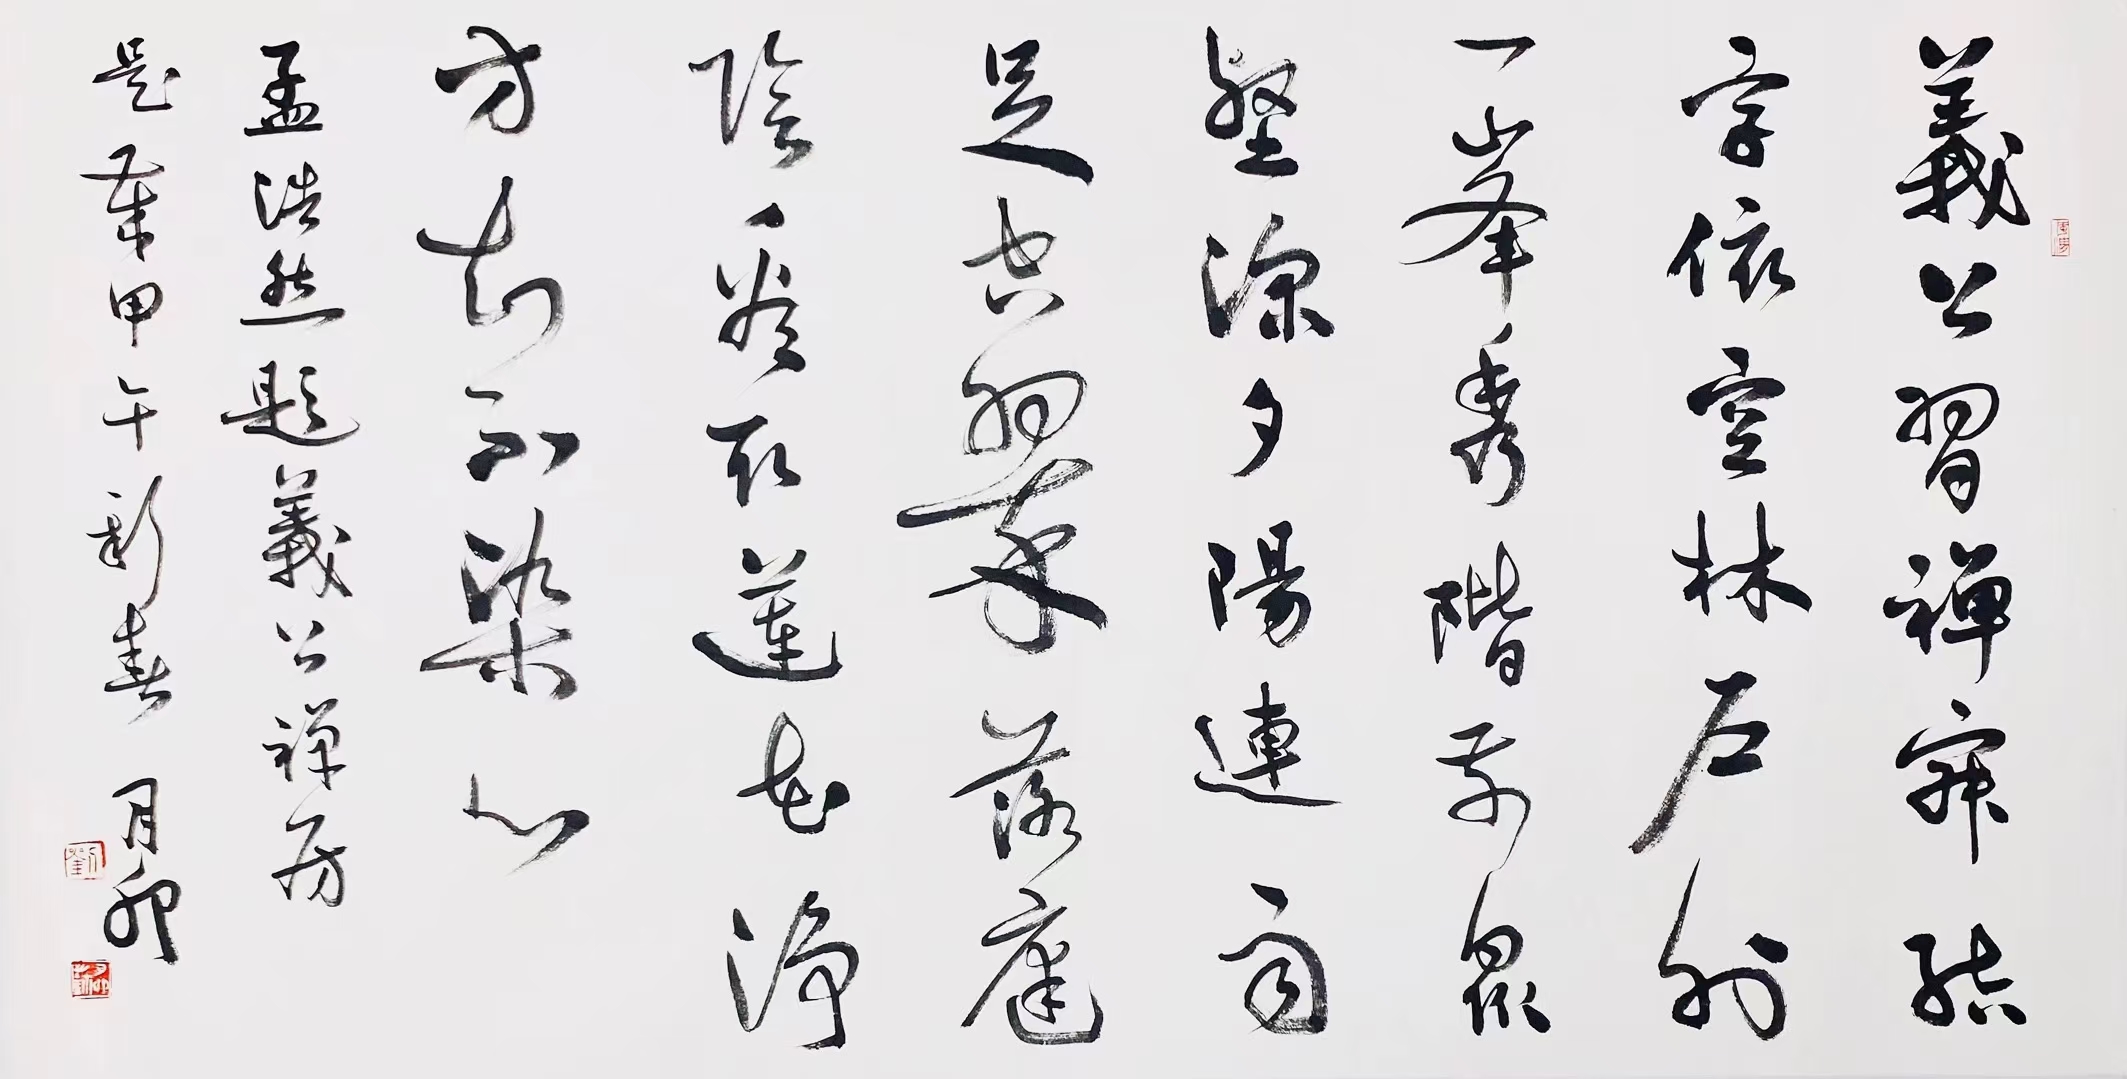 義公習禪寂結
宇依空林戶外
一峯秀階前眾
壑深夕陽連雨
足空翠落庭
陰看取蓮花淨
方知不染心
孟浩然題義公禪房
是歲甲午新春 月卯